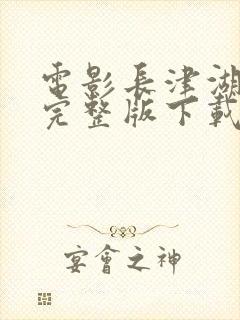 電影長津湖
完整版下載
宴會之神